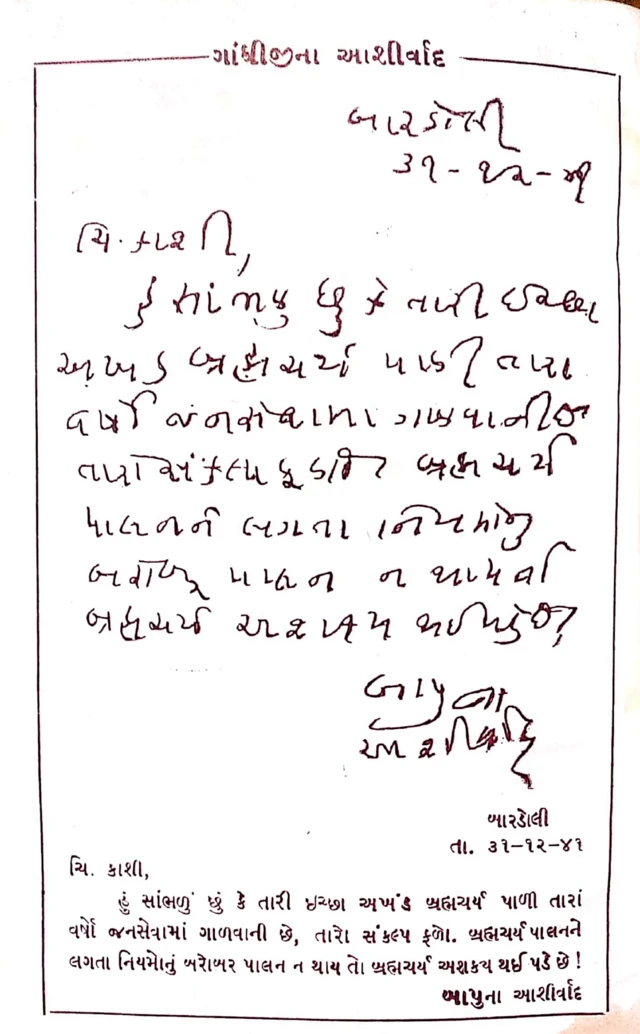 ગાંધીજીના આશીર્વાદ
બારડોલી
૩૧-૧૨-૪૧
ચિ. કાશી,
હું સાંભળુ છું કે તારી ઇચ્છા
અખંડ બ્રહ્મચર્ય પાળી તારા
વર્ષો જનસેવામા ગાળવાની છે
તારો સંકલ્પ ફળો બ્રહ્મચર્ય
પાલનને લગતા નિયમોનું
બરોબર પાલન ન થાય તો
બ્રહ્મચર્ય અશક્ય થઈ પડે છે!
બાપુના
આશીર્વાદ
બારડોલી
તા. ૩૧-૧૨-૪૧
ચિ. કાશી,
હું સાંભળું છું કે તારી ઇચ્છા અખંડ બ્રહ્મચર્ય પાળી તારાં
વર્ષો જનસેવામાં ગાળવાની છે, તારો સંકલ્પ ફળો. બ્રહ્મચર્ય પાલનને
લગતા નિયમોનું બરોબર પાલન ન થાય તો બ્રહ્મચર્ય અશક્ય થઈ પડે છે!
બાપુના આશીર્વાદ